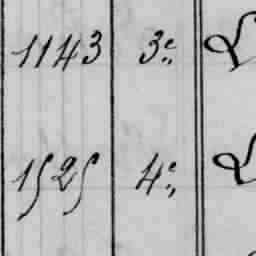 1143 3e
1525 4e